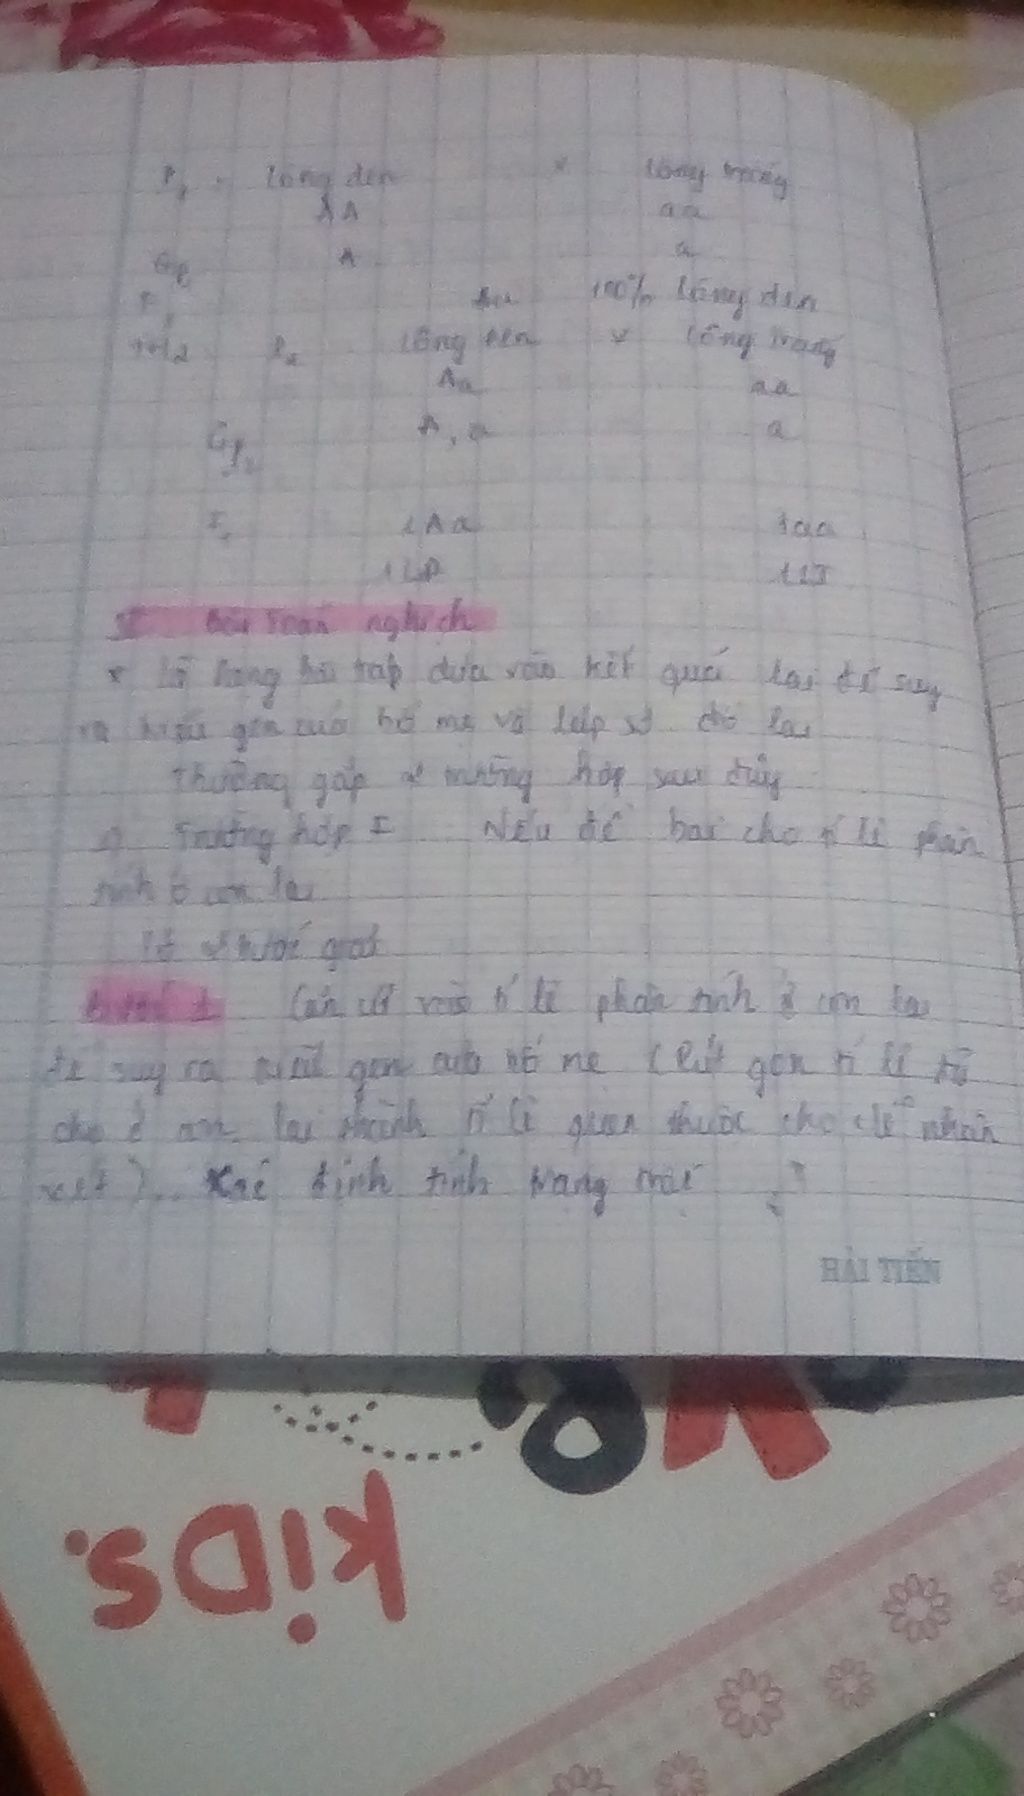 P₁ : Lông đen × Lông trắng
AA aa
A a
F₁ Aa 100% Lông đen
P₂ Lông đen × Lông trắng
Aa aa
A, a a
1Aa 1aa
II Bài toán nghịch
dựa vào kết quả lai để suy
ra kiểu gen của bố mẹ và lập sơ đồ lai
Thường gặp 2 trường hợp sau đây
Trường hợp I Nếu đề bài cho tỉ lệ phân
tính ở con lai
Có 2 bước giải
Bước 1 Căn cứ vào tỉ lệ phân tính ở con lai
để suy ra kiểu gen của bố mẹ (Rút gọn tỉ lệ từ
cho ở con lai thành tỉ lệ quen thuộc cho dễ nhận
xét). Xác định tính trạng trội
HẢI TIẾN
KIDS.